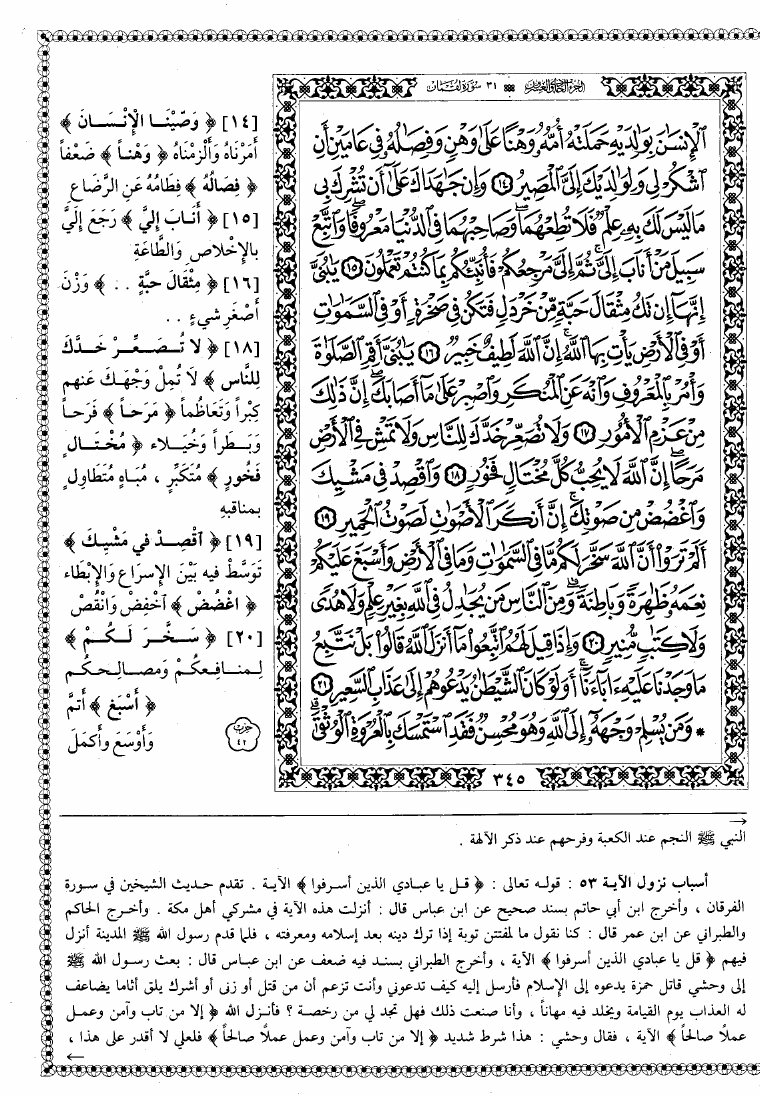 الجزء الحادي والعشرون ٣١ سورة لقمان
الْإِنسَٰنَ بِوَٰلِدَيْهِ حَمَلَتْهُ أُمُّهُۥ وَهْنًا عَلَىٰ وَهْنٍ وَفِصَٰلُهُۥ فِى عَامَيْنِ أَنِ
اشْكُرْ لِى وَلِوَٰلِدَيْكَ إِلَىَّ الْمَصِيرُ ١٤ وَإِن جَٰهَدَاكَ عَلَىٰٓ أَن تُشْرِكَ بِى
مَا لَيْسَ لَكَ بِهِۦ عِلْمٌ فَلَا تُطِعْهُمَا وَصَاحِبْهُمَا فِى الدُّنْيَا مَعْرُوفًا وَاتَّبِعْ
سَبِيلَ مَنْ أَنَابَ إِلَىَّ ثُمَّ إِلَىَّ مَرْجِعُكُمْ فَأُنَبِّئُكُم بِمَا كُنتُمْ تَعْمَلُونَ ١٥ يَٰبُنَىَّ
إِنَّهَآ إِن تَكُ مِثْقَالَ حَبَّةٍ مِّنْ خَرْدَلٍ فَتَكُن فِى صَخْرَةٍ أَوْ فِى السَّمَٰوَٰتِ
أَوْ فِى الْأَرْضِ يَأْتِ بِهَا اللَّهُ إِنَّ اللَّهَ لَطِيفٌ خَبِيرٌ ١٦ يَٰبُنَىَّ أَقِمِ الصَّلَوٰةَ
وَأْمُرْ بِالْمَعْرُوفِ وَانْهَ عَنِ الْمُنكَرِ وَاصْبِرْ عَلَىٰ مَآ أَصَابَكَ إِنَّ ذَٰلِكَ
مِنْ عَزْمِ الْأُمُورِ ١٧ وَلَا تُصَعِّرْ خَدَّكَ لِلنَّاسِ وَلَا تَمْشِ فِى الْأَرْضِ
مَرَحًا إِنَّ اللَّهَ لَا يُحِبُّ كُلَّ مُخْتَالٍ فَخُورٍ ١٨ وَاقْصِدْ فِى مَشْيِكَ
وَاغْضُضْ مِن صَوْتِكَ إِنَّ أَنكَرَ الْأَصْوَٰتِ لَصَوْتُ الْحَمِيرِ ١٩
أَلَمْ تَرَوْا أَنَّ اللَّهَ سَخَّرَ لَكُم مَّا فِى السَّمَٰوَٰتِ وَمَا فِى الْأَرْضِ وَأَسْبَغَ عَلَيْكُمْ
نِعَمَهُۥ ظَٰهِرَةً وَبَاطِنَةً وَمِنَ النَّاسِ مَن يُجَٰدِلُ فِى اللَّهِ بِغَيْرِ عِلْمٍ وَلَا هُدًى
وَلَا كِتَٰبٍ مُّنِيرٍ ٢٠ وَإِذَا قِيلَ لَهُمُ اتَّبِعُوا مَآ أَنزَلَ اللَّهُ قَالُوا بَلْ نَتَّبِعُ
مَا وَجَدْنَا عَلَيْهِ ءَابَآءَنَآ أَوَلَوْ كَانَ الشَّيْطَٰنُ يَدْعُوهُمْ إِلَىٰ عَذَابِ السَّعِيرِ ٢١
* وَمَن يُسْلِمْ وَجْهَهُۥٓ إِلَى اللَّهِ وَهُوَ مُحْسِنٌ فَقَدِ اسْتَمْسَكَ بِالْعُرْوَةِ الْوُثْقَىٰ
٣٤٥
[١٤] ﴿ وَصَّيْنَـا الإِنْسَـانَ ﴾
أَمَرْنَاهُ وَأَلْزَمْنَاهُ ﴿ وَهْنـاً ﴾ ضَعْفاً
﴿ فِصَالُهُ ﴾ فِطَامُهُ عَنِ الرَّضَاعِ
[١٥] ﴿ أَنَـابَ إِليَّ ﴾ رَجَعَ إِلَيَّ
بالإِخْلاصِ وَالطَّاعَةِ
[١٦] ﴿ مِثْقَالَ حبَّةٍ . . ﴾ وَزْنَ
أَصْغَرِ شيءٍ . .
[١٨] ﴿ لا تُـصَـعِّـرْ خَـدَّكَ
لِلنَّاسِ ﴾ لَا تُمِلْ وَجْهَكَ عَنهم
كِبْراً وَتَعَاظُماً ﴿ مَرَحاً ﴾ فَرَحاً
وَبَـطَراً وَخُيَـلاء ﴿ مُخْتَـالٍ
فَخُورٍ ﴾ مُتَكَبِّرٍ ، مُبَاهٍ مُتَطَاوِلٍ
بمناقبهِ
[١٩] ﴿ اقْصِدْ في مَشْيِكَ ﴾
تَوَسَّطْ فيه بَيْنَ الإِسرَاعِ وَالإِبْطَاء
﴿ اغْضُضْ ﴾ اخْفِضْ وَانْقُصْ
[٢٠] ﴿ سَـخَّـرَ لَـكُـمْ ﴾
لِـمنـافِـعكُـمْ وَمصـالِـحكُـم
﴿ أَسْبَغ ﴾ أَتمَّ
وَأَوْسَعَ وأَكمَلَ
حزب
٤٢
النبي ﷺ النجم عند الكعبة وفرحهم عند ذكر الآلهة .
أسباب نزول الآيـة ٥٣ : قولـه تعالى : ﴿ قـل يا عبـادي الذين أسـرفوا ﴾ الآيـة . تقدم حديث الشيخين في سـورة
الفرقان ، وأخرج ابن أبي حاتم بسند صحيح عن ابن عباس قال : أنزلت هذه الآية في مشركي أهل مكة . وأخـرج الحاكم
والطبراني عن ابن عمر قال : كنا نقول ما لمفتتن توبة إذا ترك دينه بعد إسلامه ومعرفته ، فلما قدم رسول الله ﷺ المدينة أنزل
فيهم ﴿ قل يا عبادي الذين أسرفوا ﴾ الآية ، وأخرج الطبراني بسنـد فيه ضعف عن ابن عبـاس قال : بعث رسـول الله ﷺ
إلى وحشي قاتل حمزة يدعوه إلى الإسلام فأرسل إليه كيف تدعوني وأنت تزعم أن من قتل أو زنى أو أشرك يلق أثاما يضاعف
له العذاب يوم القيامة ويخلد فيه مهاناً ، وأنا صنعت ذلك فهل تجد لي من رخصـة ؟ فأنـزل الله ﴿ إلا من تاب وآمن وعمـل
عملاً صالحاً ﴾ الآية ، فقال وحشي : هذا شرط شديد ﴿ إلا من تاب وآمن وعمل عملاً صالحاً ﴾ فلعلي لا أقدر على هذا ،